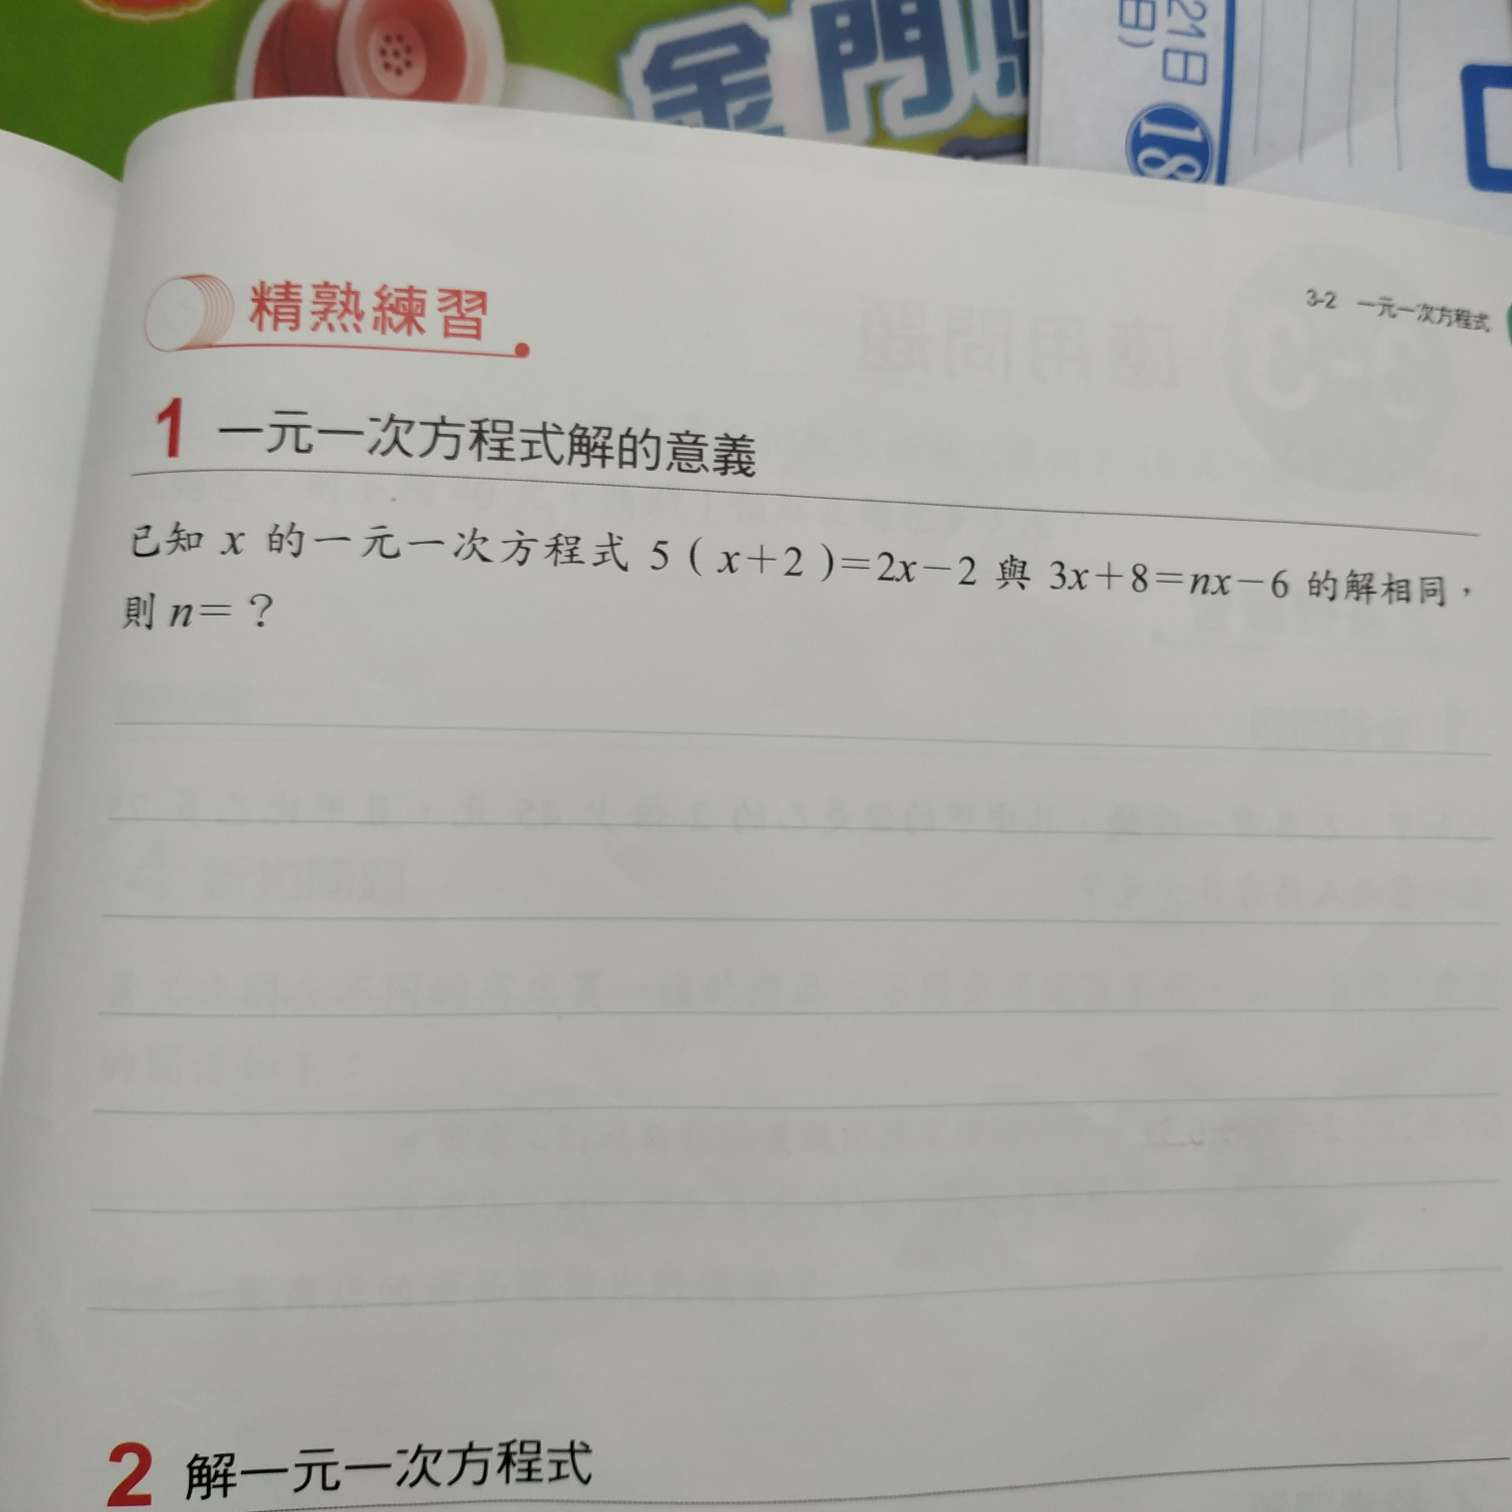 金門
21日
日)
18
3-2 一元一次方程式
精熟練習
1 一元一次方程式解的意義
已知 x 的一元一次方程式 5(x+2)=2x-2 與 3x+8=nx-6 的解相同，
則 n=？
2 解一元一次方程式